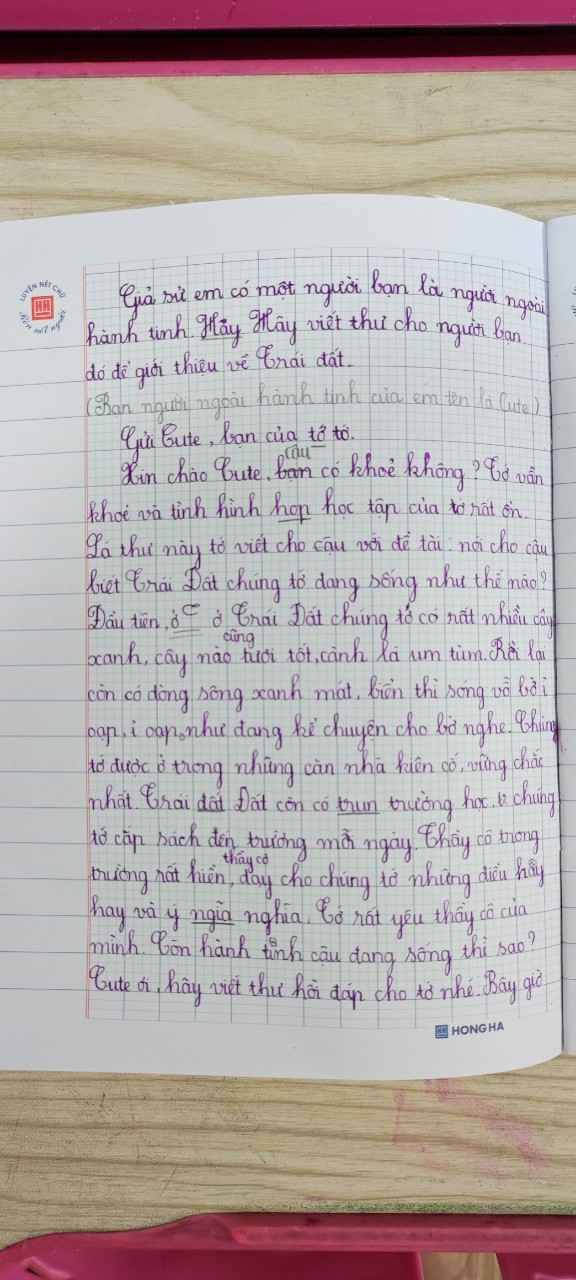 LUYỆN NÉT CHỮ
Rèn nết người
Giả sử em có một người bạn là người ngoài
hành tinh. Hẫy Hãy viết thư cho người bạn
đó để giới thiệu về Trái đất.
(Bạn người ngoài hành tinh của em tên là Cute)
Gửi Cute, bạn của tớ tớ.
cậu
Xin chào Cute, bạn có khoẻ không? Tớ vẫn
khoẻ và tình hình hop học tập của tớ rất ổn.
Lá thư này tớ viết cho cậu với đề tài: nói cho cậu
biết Trái Đất chúng tớ đang sống như thế nào?
Đầu tiên, ở ở Trái Đất chúng tớ có rất nhiều cây
cũng
xanh, cây nào tươi tốt, cành lá um tùm. Rồi lại
còn có dòng sông xanh mát, biển thì sóng vỗ bờ ì
oạp, ì oạp như đang kể chuyện cho bờ nghe. Chúng
tớ được ở trong những căn nhà kiên cố, vững chắc
nhất. Trái đất Đất còn có trun trường học, chúng
tớ cắp sách đến trường mỗi ngày. Thầy cô trong
thầy cô
trường rất hiền, dạy cho chúng tớ những điều hẫy
hay và ý ngia nghĩa. Tớ rất yêu thầy cô của
mình. Còn hành tinh cậu đang sống thì sao?
Cute ơi, hãy viết thư hồi đáp cho tớ nhé. Bây giờ
HH HONG HA